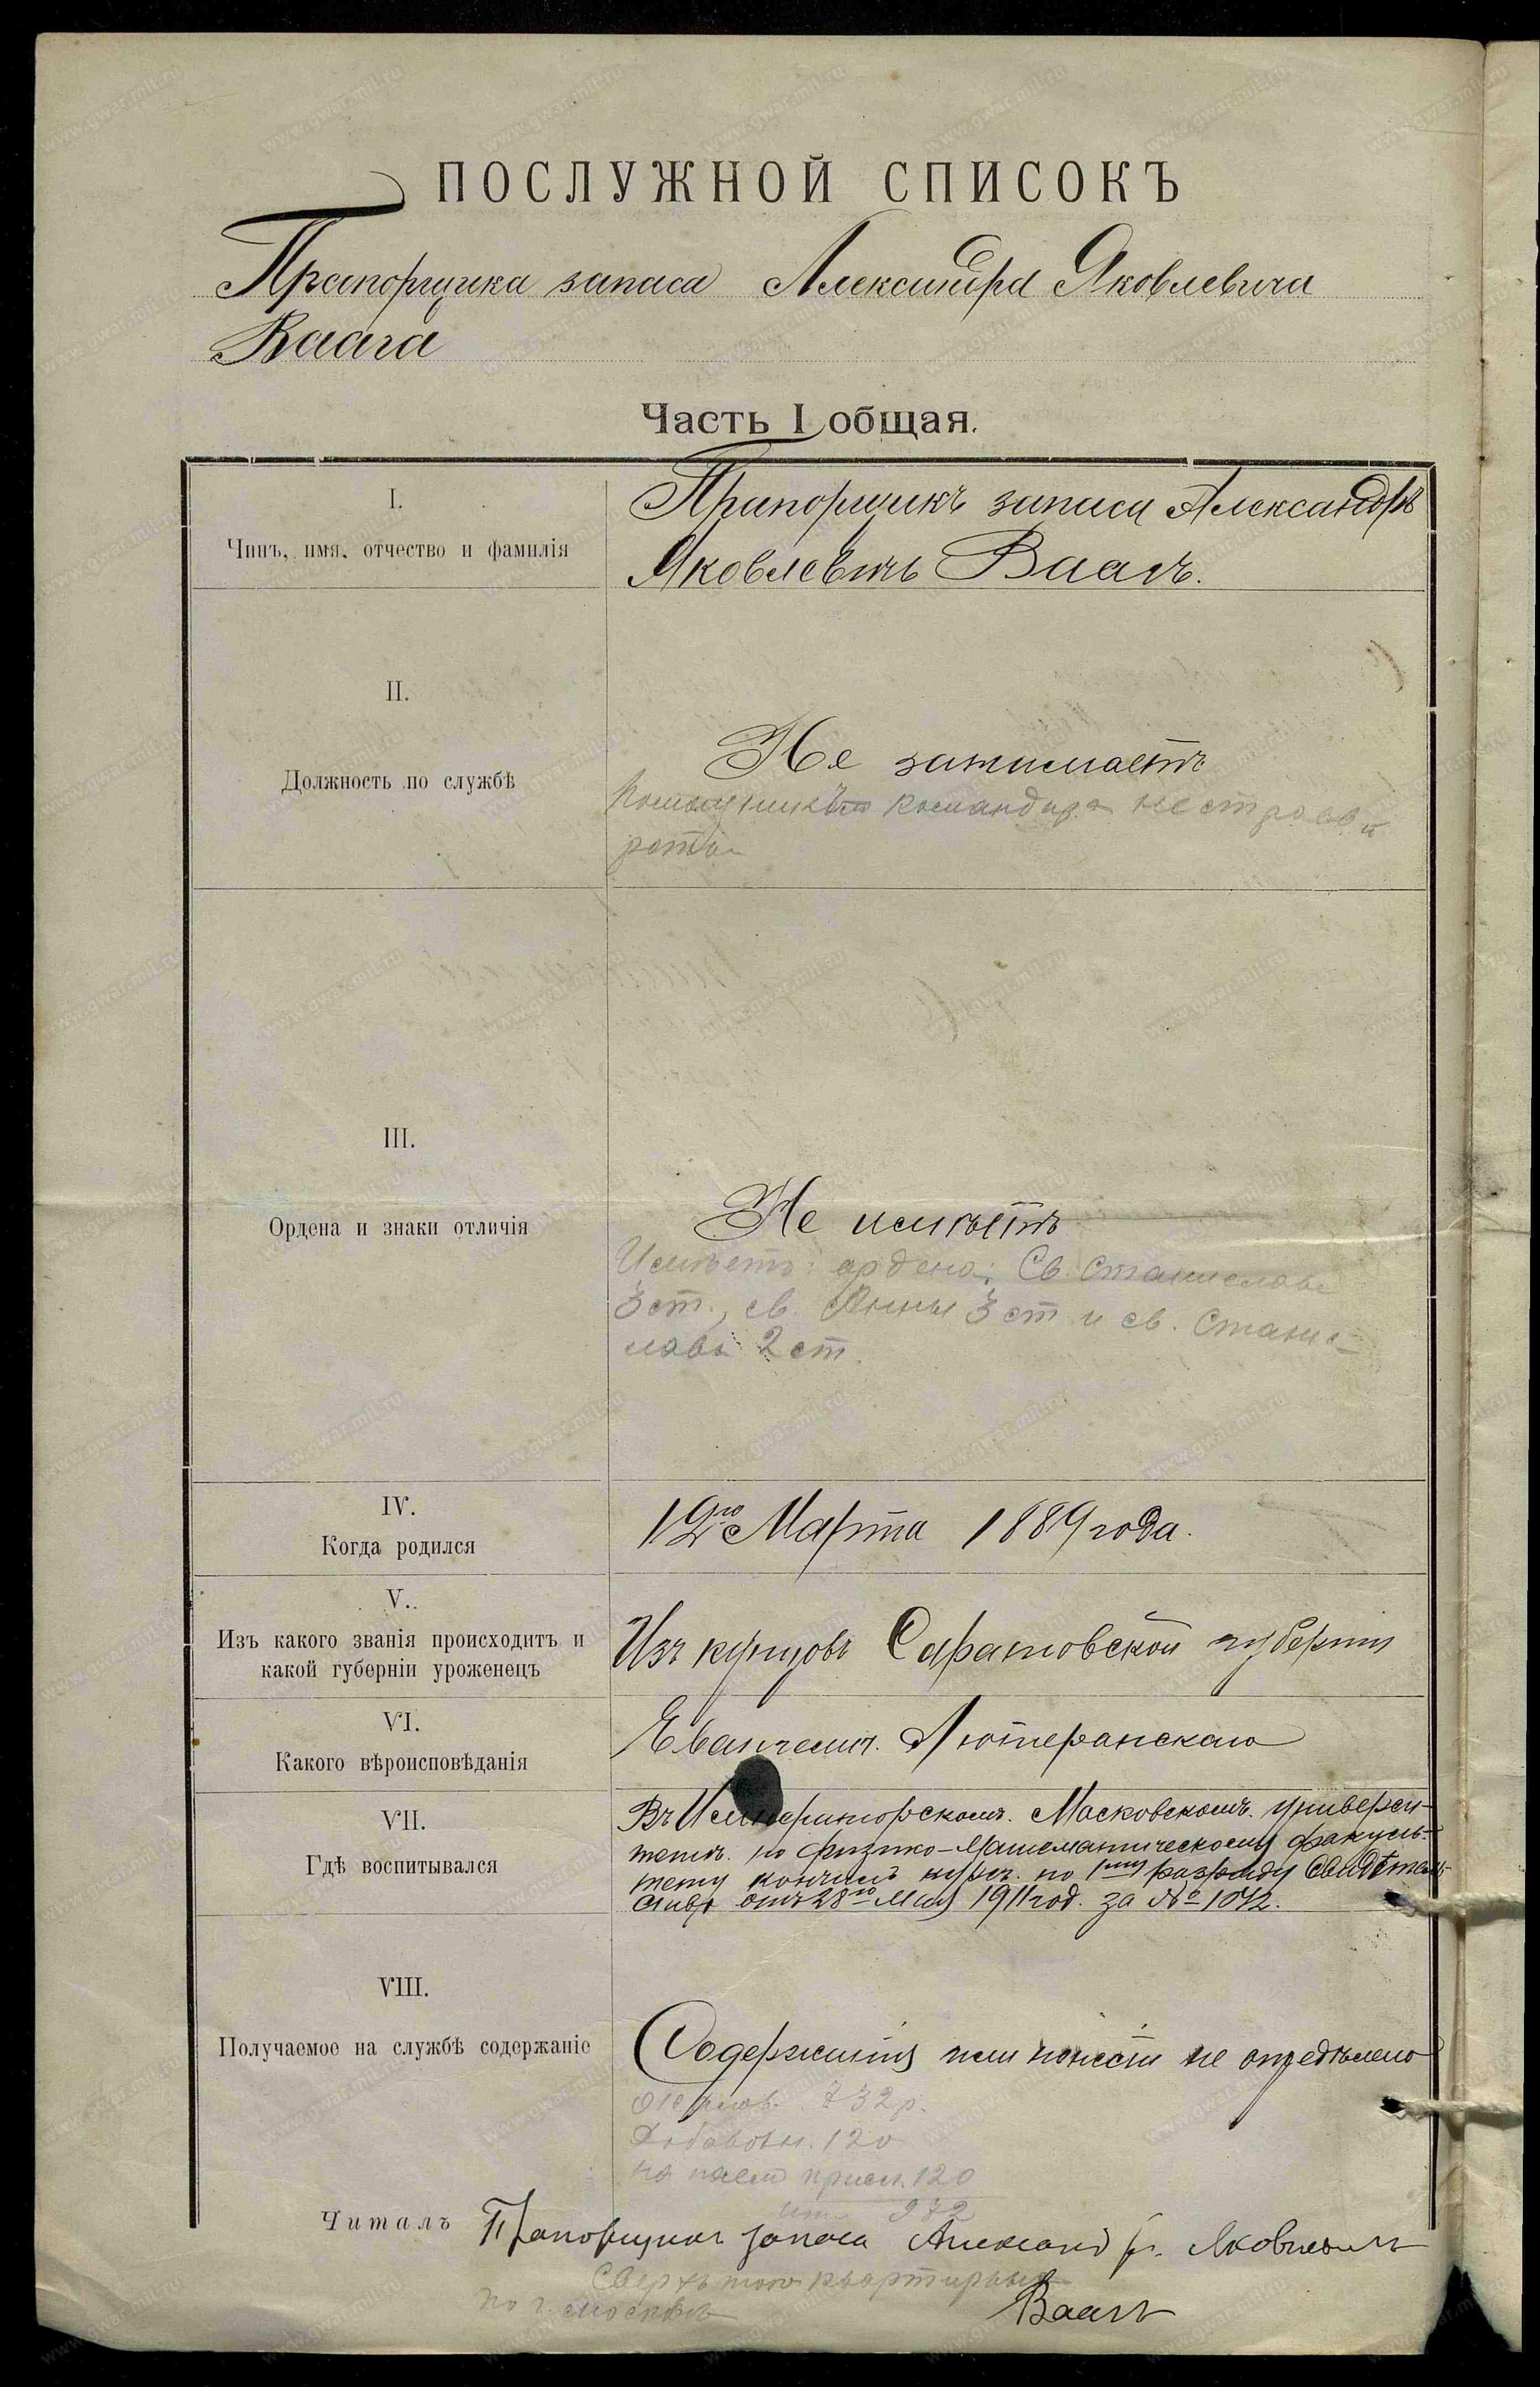 ПОСЛУЖНОЙ СПИСОКЪ
Прапорщика запаса Александра Яковлевича
Ваага
Часть I общая.
I.
Чинъ, имя, отчество и фамилія
Прапорщикъ запаса Александръ
Яковлевичъ Ваагъ.
II.
Должность по службѣ
Не занимаетъ
командира нестроевой
роты
III.
Ордена и знаки отличія
Не имѣетъ
Имѣетъ: ордена: Св. Станислава
3 ст., св. Анны 3 ст и св. Станис-
лава 2 ст.
IV.
Когда родился
12го Марта 1889 года.
V.
Изъ какого званія происходитъ и
какой губерніи уроженецъ
Изъ купцовъ Саратовской губерніи
VI.
Какого вѣроисповѣданія
Евангелич. Лютеранскаго
VII.
Гдѣ воспитывался
Въ Императорскомъ. Московскомъ. универси-
тетѣ. по физико-Математическому факуль-
тету кончилъ курсъ. по 1му разряду Свидѣтель-
ство отъ 28го Мая 1911 год. за № 1072.
VIII.
Получаемое на службѣ содержаніе
Содержанія или пенсіи не опредѣлено
жалов. 732 р.
Добавочн. 120
на наем присл. 120
ит. 972
Читалъ Прапорщикъ запаса Александръ. Яковлевичъ
Сверхъ того квартирныя
по г. Москвѣ
Ваагъ
www.gwar.mil.ru